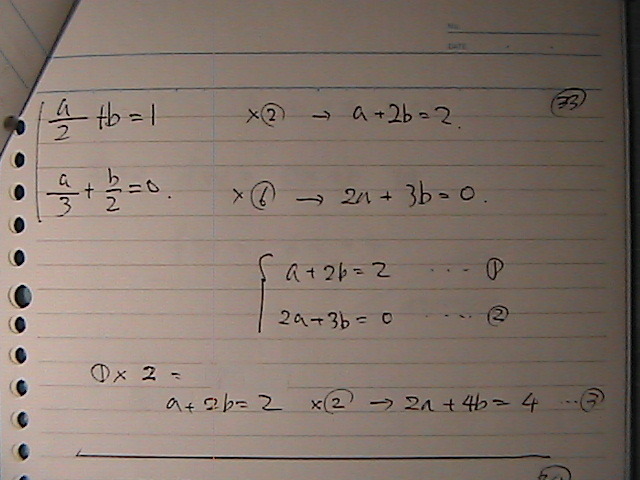 NO.
DATE
a/2 + b = 1 ×② → a + 2b = 2. 33
a/3 + b/2 = 0. ×⑥ → 2a + 3b = 0.
a + 2b = 2 ···· ①
2a + 3b = 0 ····· ②
① × 2 =
a + 2b = 2 ×② → 2a + 4b = 4 ···③